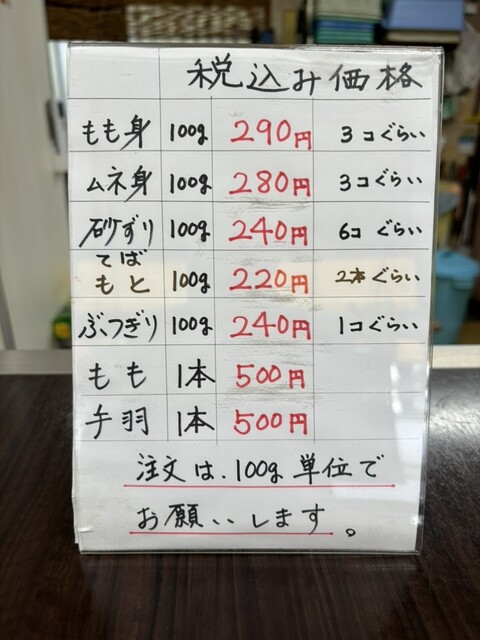 税込み価格
もも身 100g 290円 3コぐらい
ムネ身 100g 280円 3コぐらい
砂ずり 100g 240円 6コ ぐらい
てば
もと 100g 220円 2本 ぐらい
ぶつぎり 100g 240円 1コぐらい
もも 1本 500円
手羽 1本 500円
注文は、100g単位で
お願いします。